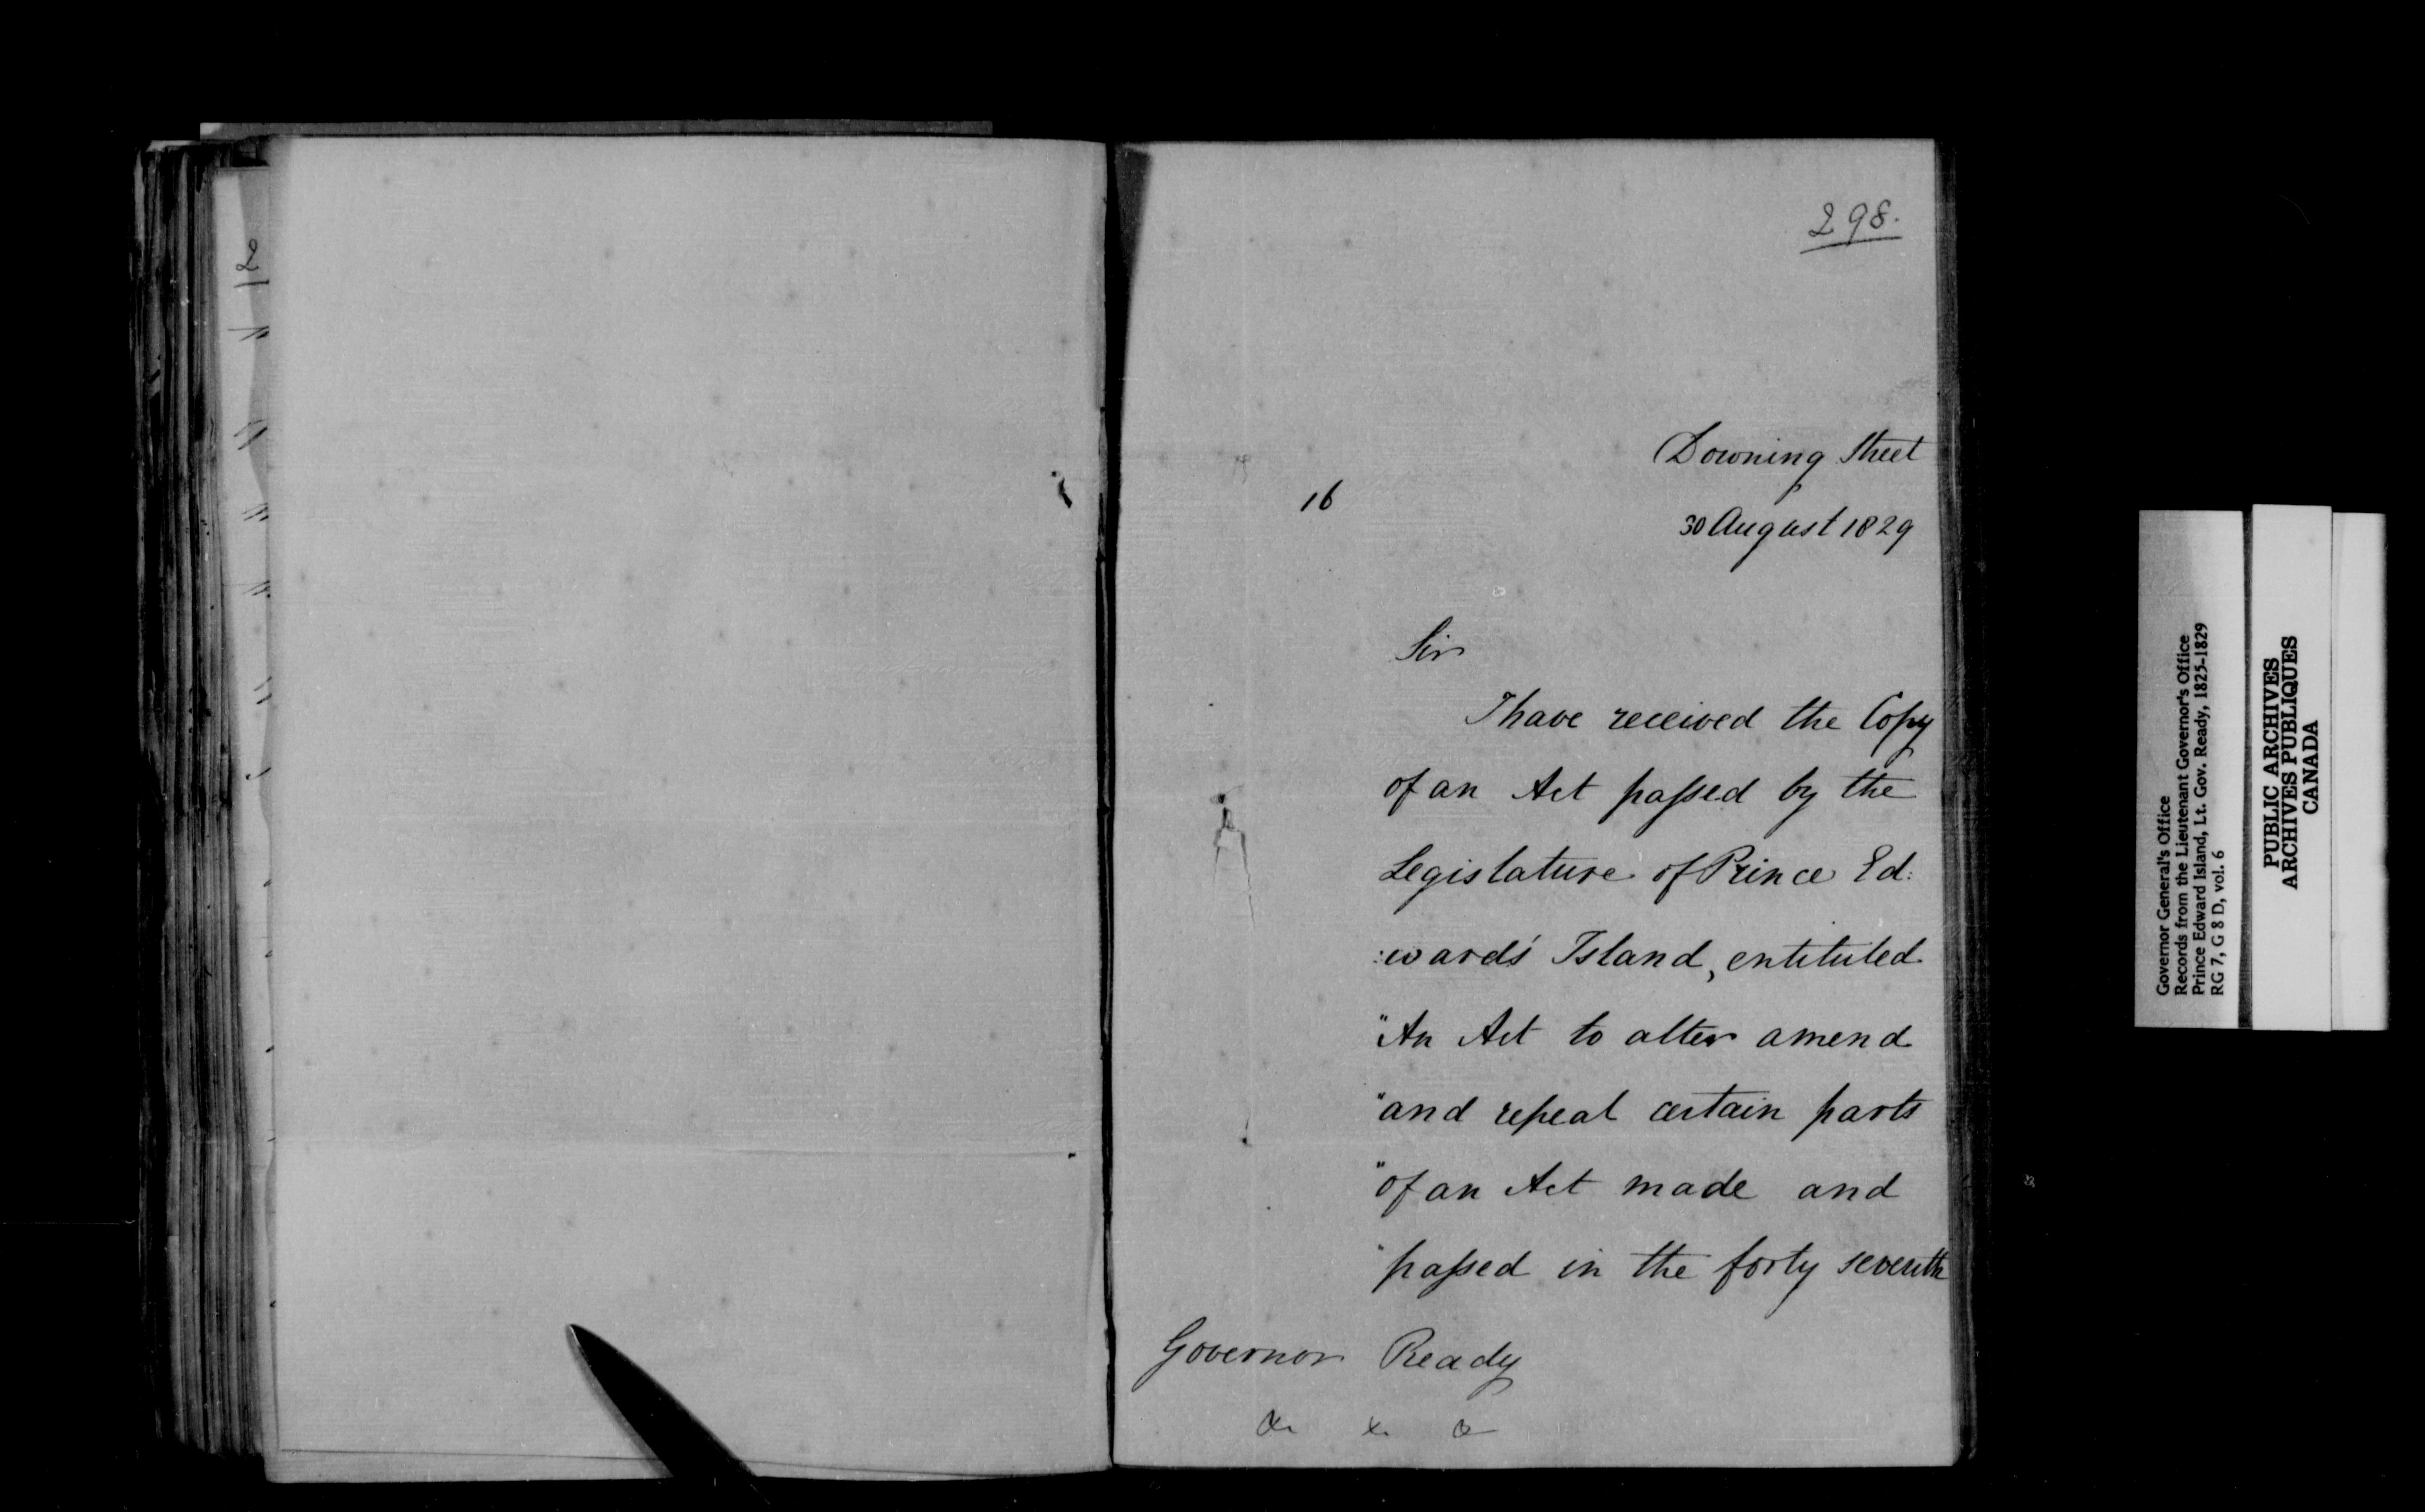 298.
Downing Street
16
30 August 1829
Sir
I have received the Copy
of an Act passed by the
Legislature of Prince Ed:
:ward's Island, entituled
"An Act to alter amend
"and repeal certain parts
"of an Act made and
"passed in the forty seventh
Governor Ready
&. &. &
Governor General's Office
Records from the Lieutenant Governor's Office
Prince Edward Island, Lt. Gov. Ready, 1825-1829
RG 7, G 8 D, vol. 6
PUBLIC ARCHIVES
ARCHIVES PUBLIQUES
CANADA